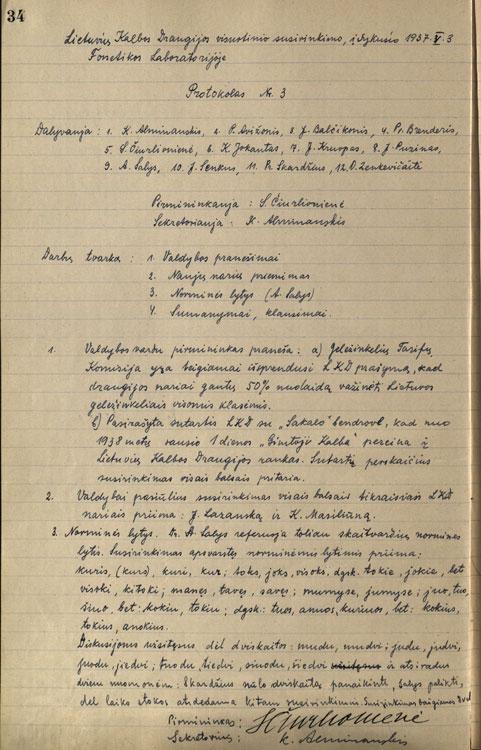 34
Lietuvių Kalbos Draugijos visuotinio susirinkimo, įvykusio 1937.V.3
Fonetikos Laboratorijoje
Protokolas Nr. 3
Dalyvauja: 1. K. Alminauskis, 2. P. Avižonis, 3. J. Balčikonis, 4. Pr. Brenderis,
5. S. Čiurlionienė, 6. K. Jokantas, 7. J. Kruopas, 8. J. Puzinas,
9. A. Salys, 10. J. Senkus, 11. Pr. Skardžius, 12. O. Zenkevičaitė
Pirmininkauja: S. Čiurlionienė
Sekretoriauja: K. Alminauskis
Darbų tvarka: 1. Valdybos pranešimai
2. Naujų narių priėmimas
3. Norminės lytys (A. Salys)
4. Sumanymai, klausimai.
1. Valdybos vardu pirmininkas praneša: a) Geležinkelių Tarifų
Komisija yra teigiamai išsprendusi LKD prašymą, kad
draugijos nariai gautų 50% nuolaidą važinėti Lietuvos
geležinkeliais visomis klasėmis.
b) Pasirašyta sutartis LKD su „Sakalo" bendrove, kad nuo
1938 metų sausio 1 dienos „Gimtoji Kalba" pereina į
Lietuvių Kalbos Draugijos rankas. Sutartį perskaičius
susirinkimas visais balsais pritaria.
2. Valdybai pasiūlius susirinkimas visais balsais tikraisiais LKD
nariais priima: J. Lazauską ir K. Masiliūną.
3. Norminės lytys. Dr. A. Salys referuoja toliau skaitvardžių normines
lytis. Susirinkimas apsvarstęs norminėmis lytimis priima:
kuris, (kurs), kuri, kur; toks, joks, visoks, dgsk. tokie, jokie, bet
visoki, kitoki; manęs, tavęs, savęs; mumyse, jumyse; juo, tuo,
šiuo, bet: kokiu, tokiu; dgsk: tuos, anuos, kuriuos, bet: kokius,
tokius, anokius.
Diskusijoms užsitęsus dėl dviskaitos: mudu, mudvi; judu, judvi,
juodu, jiedvi; tuodu, tiedvi, šiuodu, šiedvi ir atsiradus
dviem nuomonėm: Skardžius siūlo dviskaitą panaikinti, Salys palikti,
dėl laiko stokos atidedama kitam susirinkimui. Susirinkimas baigiamas
Pirmininkas: SČiurlionienė
Sekretorius: K. Alminauskis